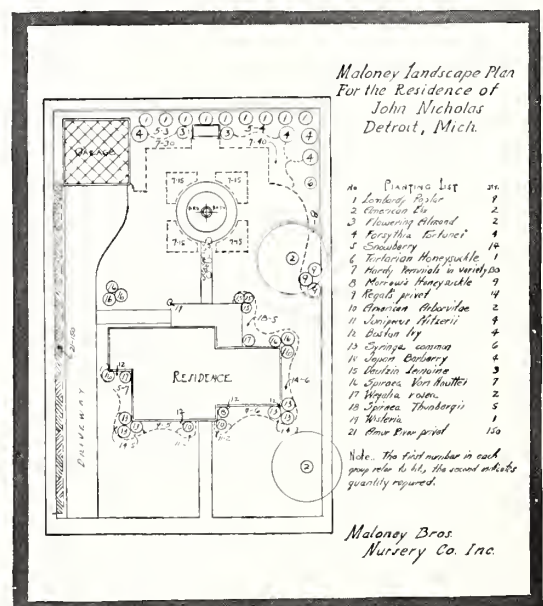 Maloney Landscape Plan
For the Residence of
John Nicholas
Detroit, Mich.
No Planting List
1 Lombardy Poplar 9
2 American Elm 2
3 Flowering Almond 2
4 Forsythia Fortunei 4
5 Snowberry 14
6 Tartarian Honeysuckle 1
7 Hardy Perennials in variety 130
8 Morrow's Honeysuckle 9
9 Regal's privet 14
10 American Arborvitae 2
11 Juniperus Pfitzerii 4
12 Boston Ivy 4
13 Syringa common 6
14 Japan Barberry 4
15 Deutzia Lemoine 3
16 Spiraea Van Houttei 7
17 Wegalia rosea 2
18 Spiraea Thunbergii 5
19 Wisteria 1
21 Amur River privet 150
Note.. The first number in each
group refer to list, the second indicates
quantity required.
Maloney Bros.
Nursery Co. Inc.
GARAGE
5-3
5-4
7-30
7-40
7-15
7-15
7-15
7-15
RESIDENCE
DRIVEWAY
21-150